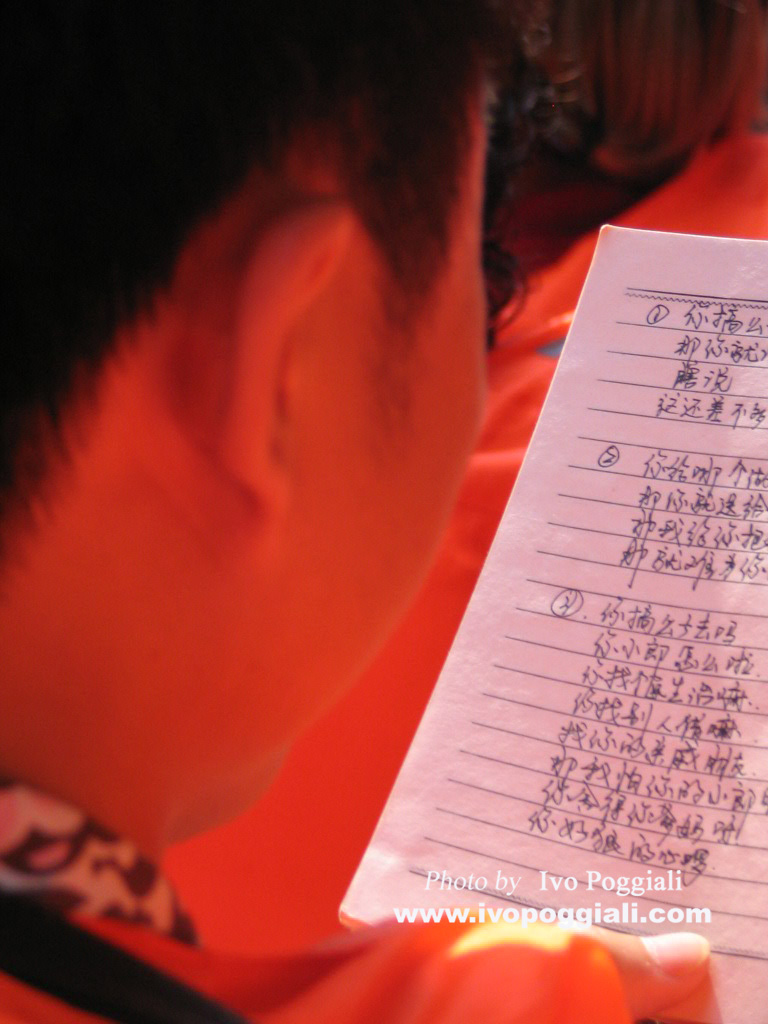 ① 你搞么
那你就
瞎说
这还差不多
② 你给哪个做
那你就送给
那我给你把
那就难为你
③. 你搞么子去吗
你小郎怎么啦
你找个医生治嘛
你找别人借嘛
找你的亲戚朋友
那我怕你的小郎
你舍得你爹妈吗
你好狠的心嗯
Photo by Ivo Poggiali
www.ivopoggiali.com